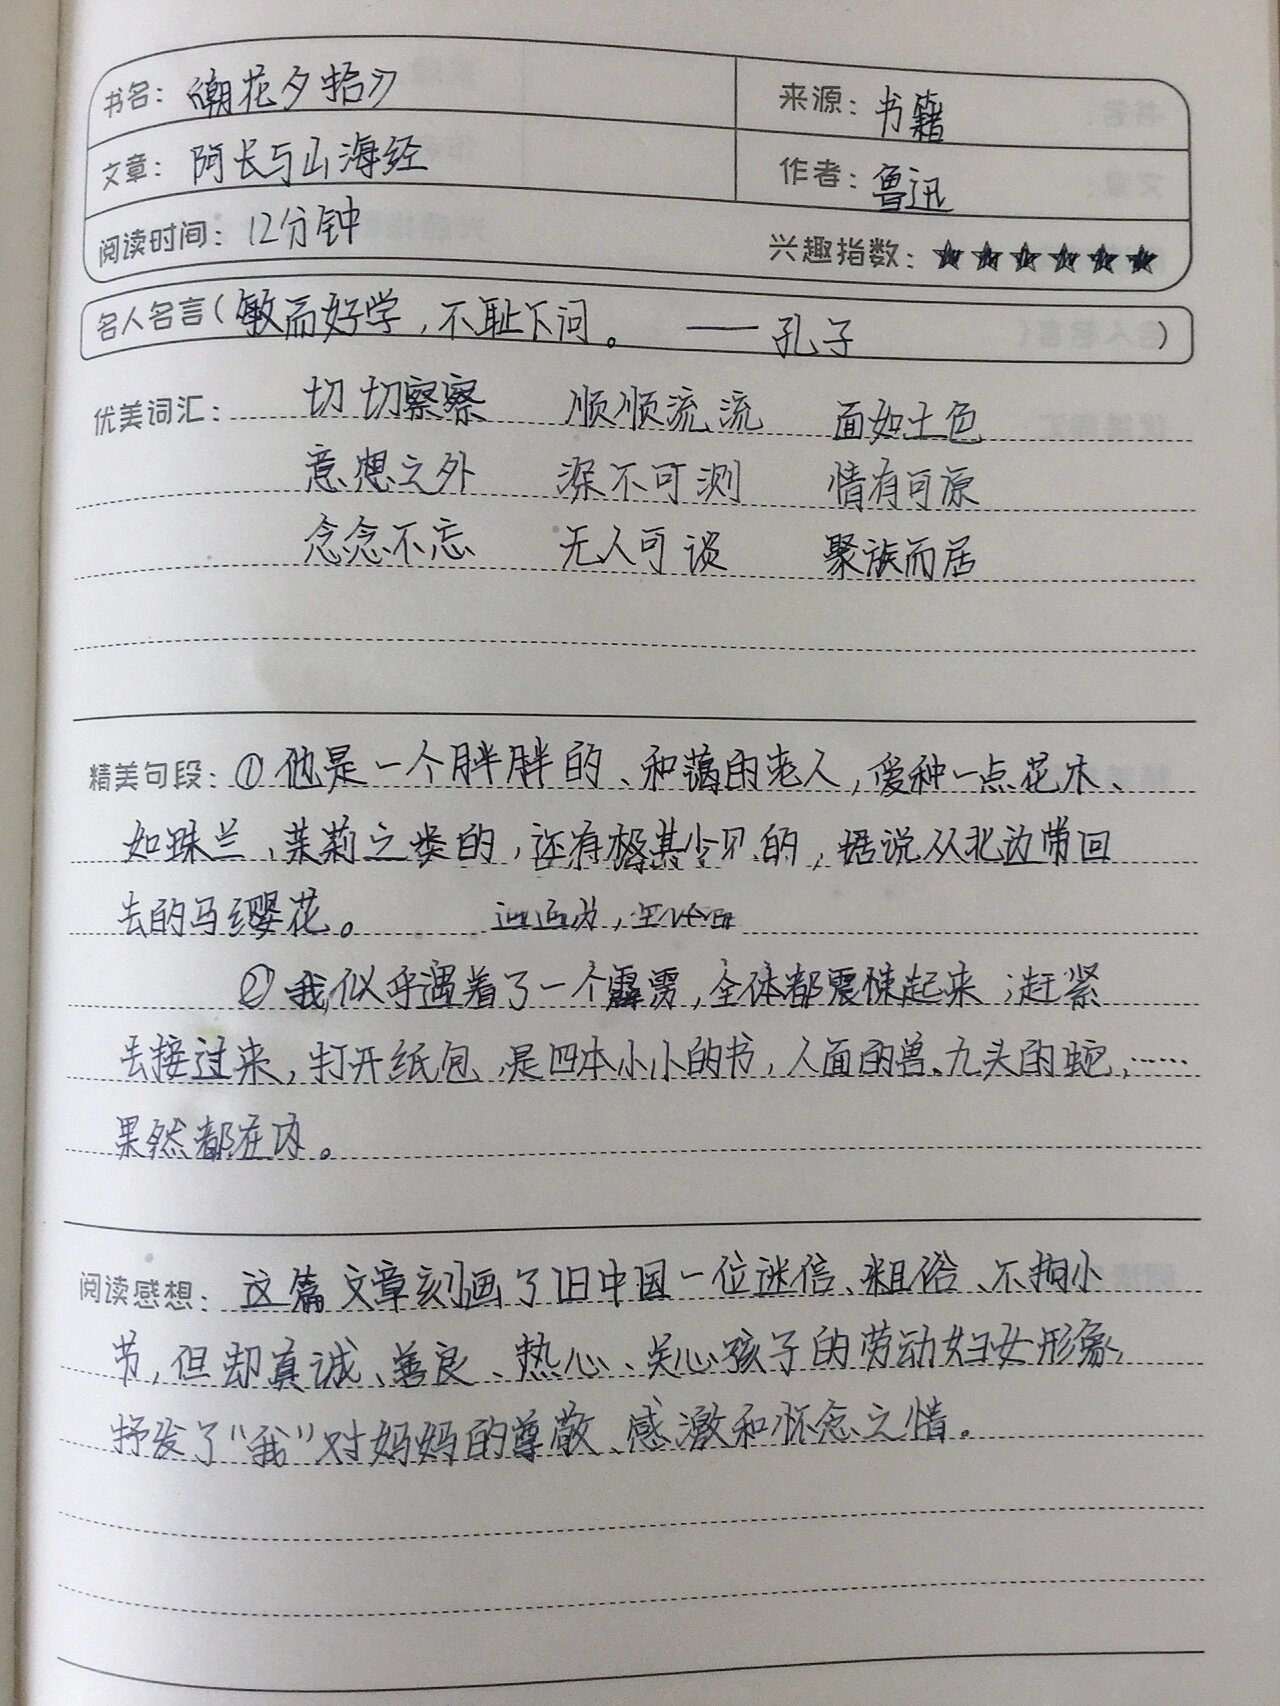 书名：《朝花夕拾》 来源：书籍
文章：阿长与山海经 作者：鲁迅
阅读时间：12分钟 兴趣指数：★★★★★★
名人名言（敏而好学，不耻下问。——孔子）
优美词汇： 切切察察 顺顺流流 面如土色
意想之外 深不可测 情有可原
念念不忘 无人可谈 聚族而居
精美句段：①他是一个胖胖的、和蔼的老人，爱种一点花木、
如珠兰、茉莉之类的，还有极其少见的，据说从北边带回
去的马缨花。
②我似乎遇着了一个霹雳，全体都震悚起来；赶紧
去接过来，打开纸包，是四本小小的书，人面的兽、九头的蛇，……
果然都在内。
阅读感想：这篇文章刻画了旧中国一位迷信、粗俗、不拘小
节，但却真诚、善良、热心、关心孩子的劳动妇女形象，
抒发了“我”对妈妈的尊敬、感激和怀念之情。